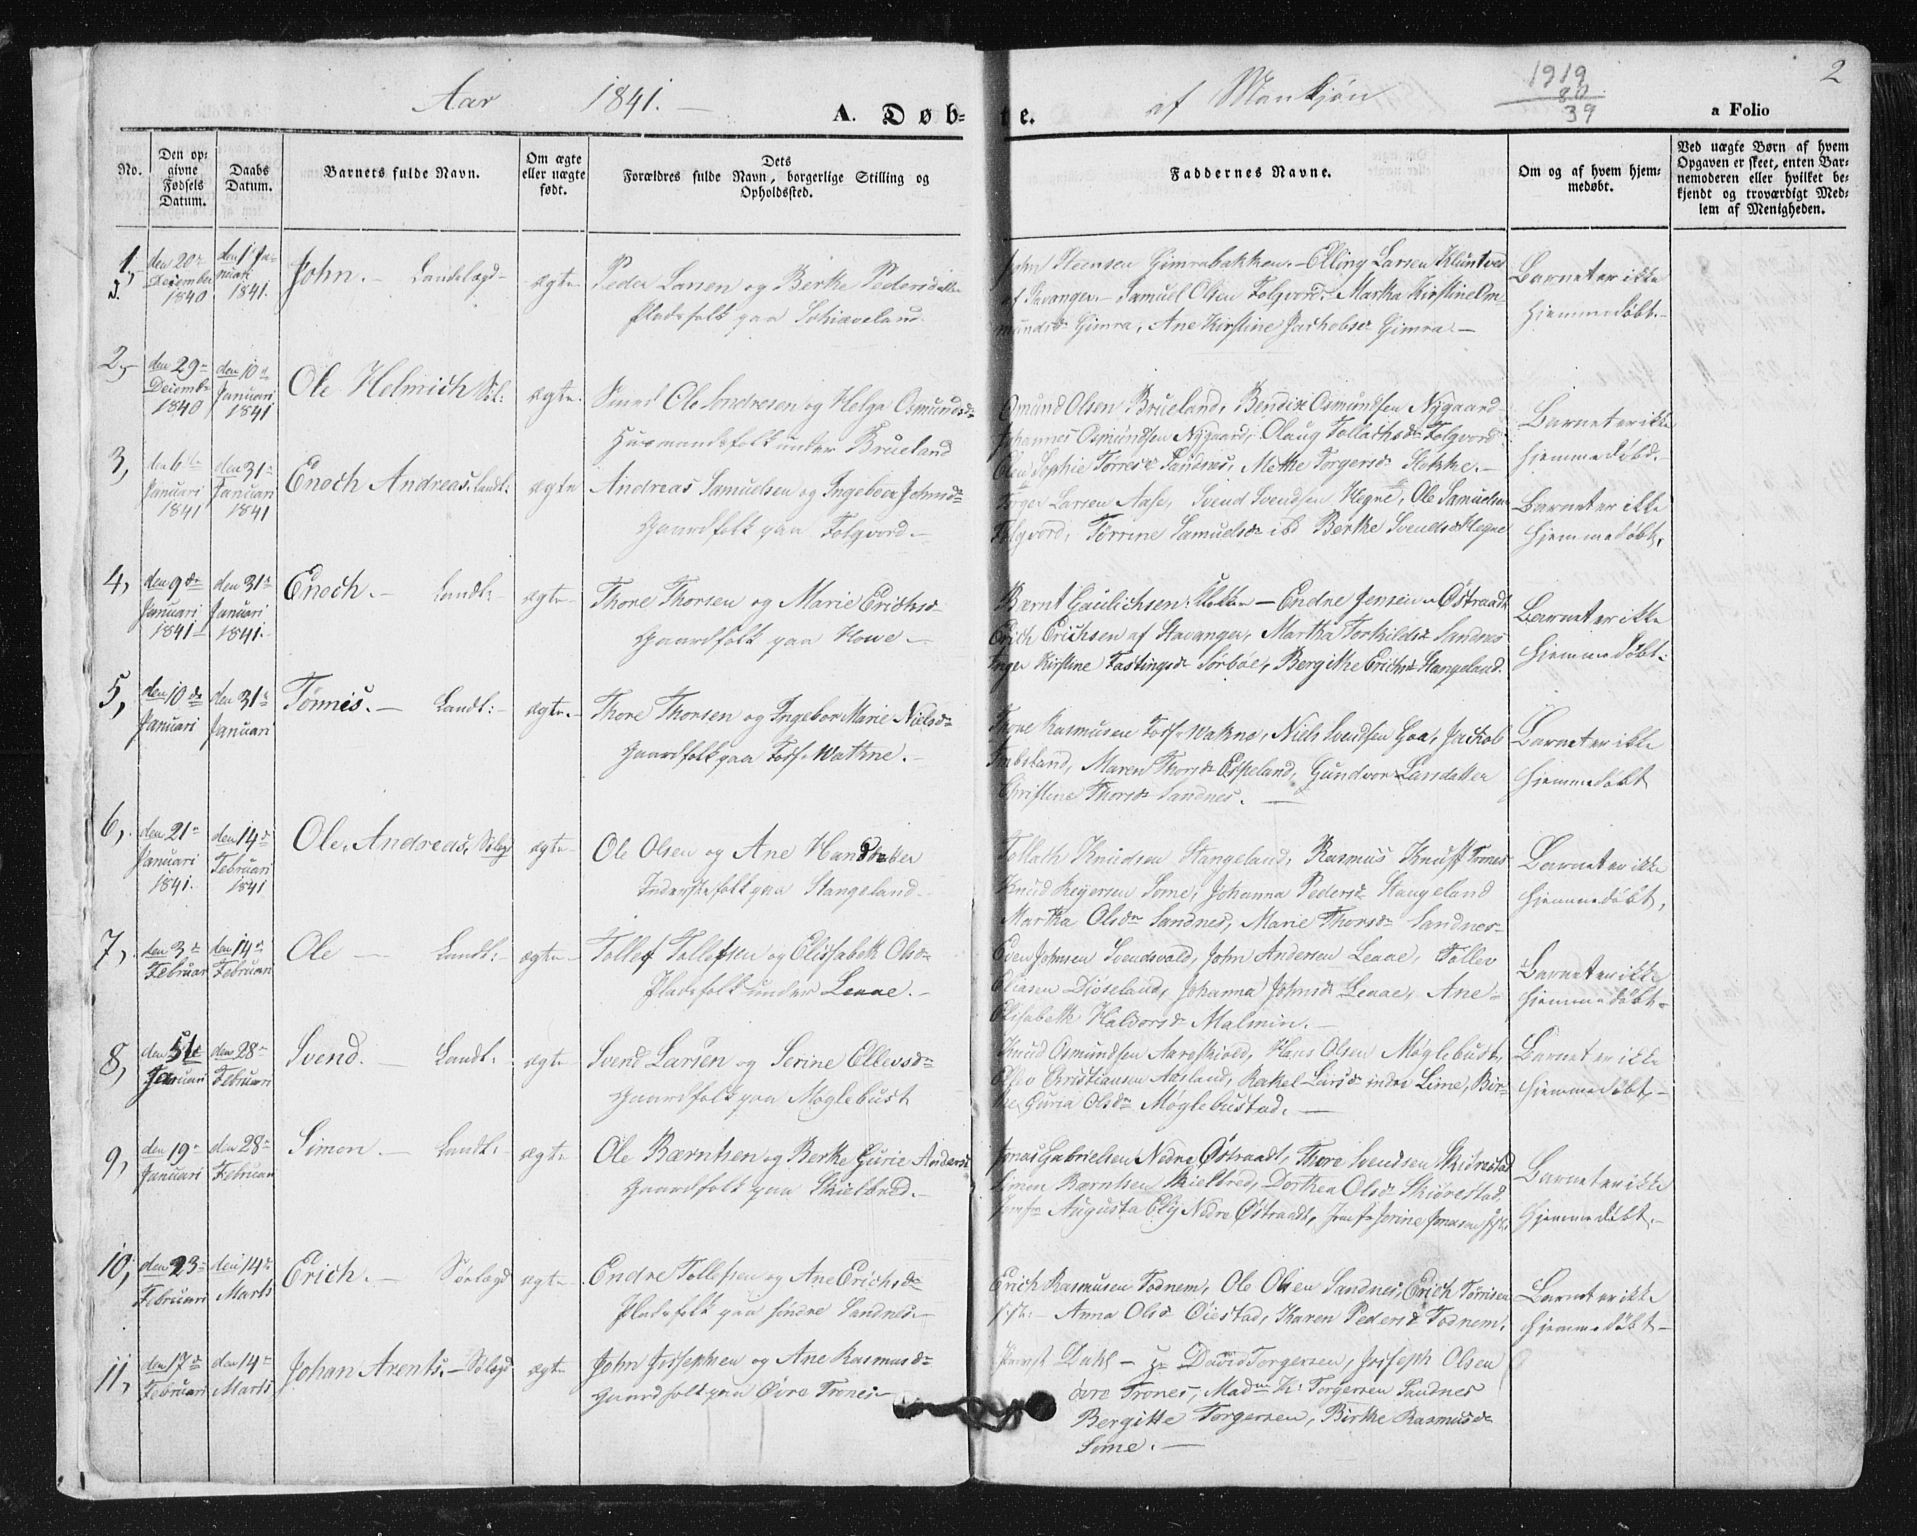 Aar 1841. A. Døb-te. af Mankjøn 1919 a Folio 2
80
39
No.
Den op-
givne
Fødsels
Datum.
Daabs
Datum.
Barnets fulde Navn.
Om ægte
eller uægte
født.
Dets
Forældres fulde Navn, borgerlige Stilling og
Opholdssted.
Faddernes Navne.
Om og af hvem hjem-
medøbt.
Ved uægte Børn af hvem
Opgaven er skeet, enten Bar-
nemoderen eller hvilket be-
kjendt og troværdigt Med-
lem af Menigheden.
1,
den 20de
December
1840
den 1 Ja-
nuari
1841.
John. — Landslægd
ægte
Peder Larsen og Berthe Pedersdatter
Pladsfolk paa Schiæveland.
John Steensen Gimrebakken. Elling Larsen
af Stavanger. Samuel Olsen Folgvord. Martha Kirstine Om-
mundsd. Gimra, Ane Kirstine Jachobsd Gimra. —
Barnet er ikke
hjemmedøbt.
2,
den 29de
Decemb.
1840
den 10de
Januari
1841
Ole Helmich Søl:
ægte.
Svend Ole Andresen og Helga Osmundsdr
Husmandsfolk under Brueland
Omund Olsen Brueland, Bendix Osmundsen Nygaard
Johannes Osmundsen Nygaard, Olaug Tollachsdr Folgvord
Sophie Torresdr Sandnes, Methe Torgersdr Stokke. —
Barnet er ikke
hjemmedøbd.
3,
den 6te
Januari
1841
den 31te
Januari
1841
Enoch Andreas. Landl:
ægte
Andreas Samuelsen og Ingeborg Johnsdr
Gaardfolk paa Folgvord. —
Torger Larsen Aase, Svend Svendsen Hegne, Ole Samuelsen
Folgvord, Tørrine Samuelsdr ibd Berthe Svendsdr Hegne
Barnet er ikke
hjemmedøbt.
4,
den 9de
Januari
1841
den 31te
Januari
1841.
Enoch. — Landl:
ægte
Thore Thorsen og Marie Erichsdr
Gaardfolk paa Howe —
Bærnt Gaulichsen: Klokker — Endre Jensen Østraadt
Erich Erichsen af Stavanger, Martha Torkildsdr Sandnes
Inger Kirstine Tastingsdr Sørbøe, Bergithe Erichsdr Stangeland.
Barnet er ikke
hjemmedøbt:
5,
den 10de
Januari
den 31te
Januari
Tønnis. — Landl: —
ægte. —
Thore Thorsen og Ingebor Marie Nielsdr
Gaardfolk paa Foss Watne. —
Thore Rasmusen Foss-Watne, Niels Svendsen Goa, Jachob
Fribeland, Maren Thorsdr Espeland, Gundvor Larsdatter
Christine Thorsdr Sandnes. —
Barnet er ikke
hjemmedøbt
6,
den 21de
Januari
1841.
den 14de
Februari
1841
Ole. Andreas. Sølægd
ægte
Ole Olsen og Ane Hansdatter
Inderstefolk paa Stangeland.
Tollach Knudsen Stangeland, Rasmus Knuff Trones
Knud Regersen Some, Johanna Pedersdr Stangeland
Martha Olsdr Sandnes, Marie Thorsdr Sandnes
Barnet er ikke
hjemmedøbt,
7,
den 3de
Februar
den 14de
Februari
Ole — Landl: —
ægte
Tollef Tollefsen og Elisabeth Olsdr
Pladsfolk under Leaae. —
Even Johnsen Svendsvold, John Andersen Leaae, Tollev
Eliasen Diøseland, Johanna Johnsdr Leaae, Ane
Elisabeth Halvorsdr Malmin. —
Barnet er ikke
hjemmedøbt
8,
den 5te
Januari
den 28de
Februari
Svend. — Landl:
ægte
Svend Larsen og Serine Ellevsdr
Gaardfolk paa Møglebust
Knud Osmundsen Aareskiold, Hans Olsen Møglebust,
Ellev Christiansen Aasland, Rakel Larsdr indre Lime, Bir-
the Guria Olsdr Møglebustad. —
Barnet er ikke
hjemmedøbt. —
9,
den 19de
Januari
den 28de
Februari
Simon. — Landl:
ægte
Ole Bærntsen og Berthe Gurie Andersdr
Gaardfolk paa Skielbred. —
Jonas Gabrielsen Nedre Østraadt, Thore Svendsen Skiørestad
Simon Bærntsen Skielbred, Dorthea Olsdr Skiørestad
Jomfr Augusta Nedre Østraadt,
Barnet er ikke
hjemmedøbt. —
10,
den 23de
Februari
den 14de
Marts
Erich. — Sørlægd
ægte.
Endre Tollefsen og Ane Erichsdr
Pladsfolk paa søndre Sandnes. —
Erich Rasmusen Todnem, Ole Olsen Sandnes, Erich Tørrisen
Anna Olsdr Øiestad, Karen Pedersd Todnem.
Barnet er ikke
hjemmedøbt —
11,
den 17de
Februari
den 14de
Marts
Johan Arents. — Sølægd
ægte
John Josephsen og Ane Rasmusdr
Gaardfolk paa Øvre Trones. —
Provst Dahl — David Torgersen, Joseph Olsen
øvre Trones, Madm K: Torgersen Sandnes
Bergitte Torgersen, Birthe Rasmusdr
Sime. —